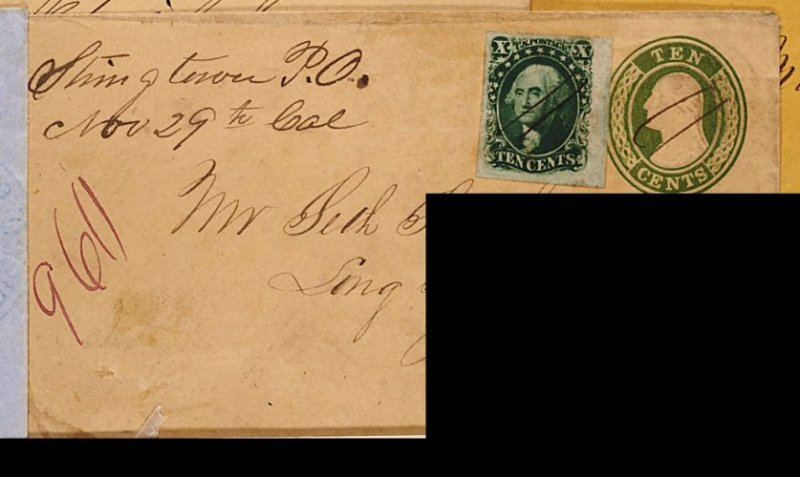 Stringtown P.O.
Nov 29th Cal
X U.S. POSTAGE X
TEN CENTS
TEN
CENTS
Mr Seth
Long
9611